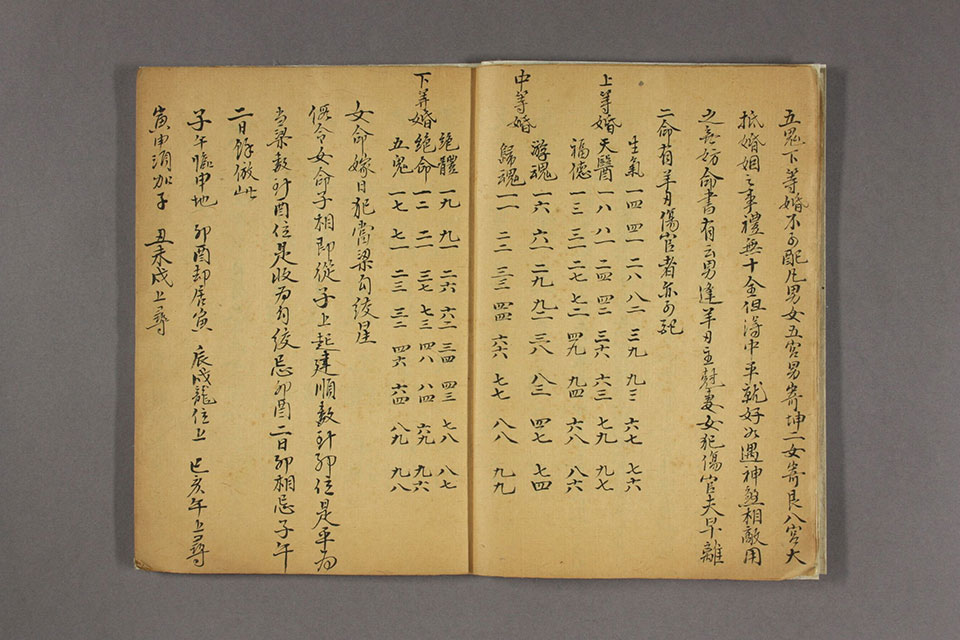 五鬼下等婚不可配凡男女五宮男寄坤二女寄艮八宮大
抵婚姻之事禮無十全但得中平就好必遇神煞相敵用
之無妨命書有云男逢羊刃主尅妻女犯傷官夫早離
二命有羊刃傷官者亦可配
上等婚
生氣 一四 四一 二八 八二 三九 九三 六七 七六
天醫 一八 八一 二四 四二 三六 六三 七九 九七
福德 一三 三一 二七 七二 四九 九四 六八 八六
中等婚
游魂 一六 六一 二九 九二 三八 八三 四七 七四
歸魂 一一 二二 三三 四四 六六 七七 八八 九九
下等婚
絕體 一九 九一 二六 六二 三四 四三 七八 八七
絕命 一二 二一 三七 七三 四八 八四 六九 九六
五鬼 一七 七一 二三 三二 四六 六四 八九 九八
女命嫁日犯當梁勾絞星
假令女命子相即從子上起建順數到卯位是平為
當梁數到酉位是收為勾絞忌卯酉二日卯相忌子午
二日餘倣此
子午臨申地 卯酉却居寅 辰戌龍位上 巳亥午上尋
寅申須加子 丑未戌上尋